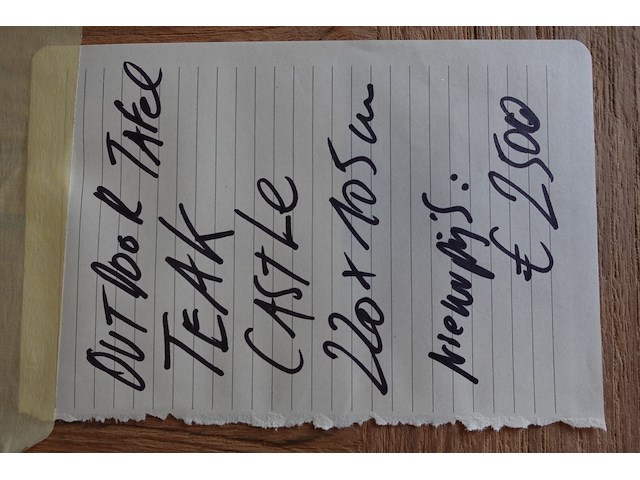 OUTDOOR TAFEL
TEAK
CASTLE
220 x 105 cm
Nieuwprijs:
€ 2500